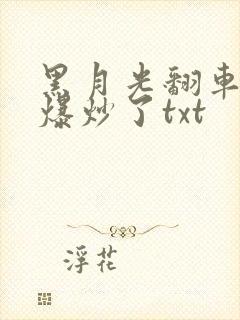 黑月光翻車
爆炒了txt
浮花